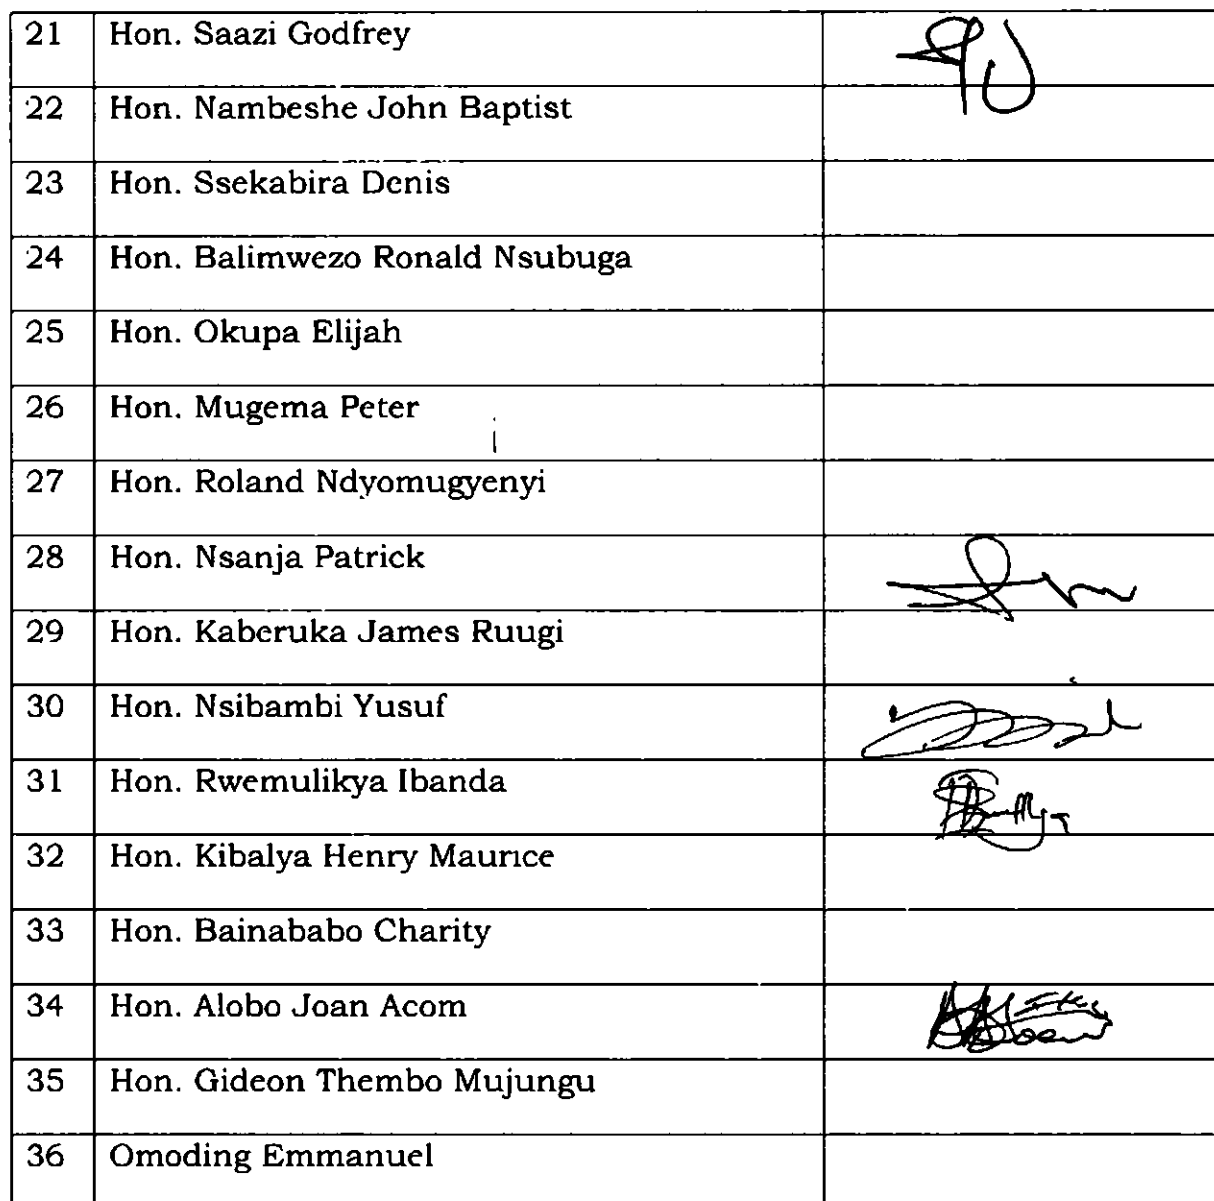 21 Hon. Saazi Godfrey
22 Hon. Nambeshe John Baptist
23 Hon. Ssekabira Denis
24 Hon. Balimwezo Ronald Nsubuga
25 Hon. Okupa Elijah
26 Hon. Mugema Peter
27 Hon. Roland Ndyomugyenyi
28 Hon. Nsanja Patrick
29 Hon. Kaberuka James Ruugi
30 Hon. Nsibambi Yusuf
31 Hon. Rwemulikya Ibanda
32 Hon. Kibalya Henry Maurice
33 Hon. Bainababo Charity
34 Hon. Alobo Joan Acom
35 Hon. Gideon Thembo Mujungu
36 Omoding Emmanuel